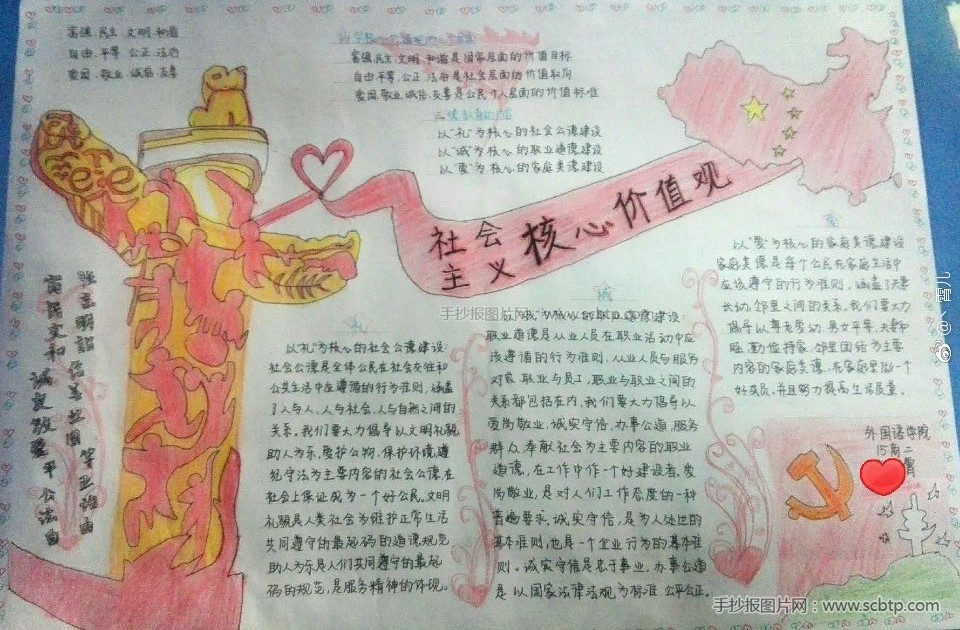 富强、民主、文明、和谐
自由、平等、公正、法治
爱国、敬业、诚信、友善
富强、民主、文明、和谐是国家层面的价值目标
自由、平等、公正、法治是社会层面的价值取向
爱国、敬业、诚信、友善是公民个人层面的价值标准
以"礼"为核心的社会公德建设
以"诚"为核心的职业道德建设
以"爱"为核心的家庭美德建设
社会
主义核心价值观
爱
以"爱"为核心的家庭美德建设
家庭美德是每个公民在家庭生活中
应该遵守的行为准则,涵盖了夫妻
长幼、邻里之间的关系,我们要大力
倡导以尊老爱幼、男女平等、夫妻和
睦、勤俭持家、邻里团结为主要
内容的家庭美德,在家庭里做一个
好成员,并且努力提高生活质量。
礼
以"礼"为核心的社会公德建设:
社会公德是全体公民在社会交往和
公共生活中应遵循的行为准则,涵盖
了人与人、人与社会、人与自然之间的
关系,我们要大力倡导以文明礼貌
助人为乐、爱护公物、保护环境、遵
纪守法为主要内容的社会公德,在
社会上保证成为一个好公民。文明
礼貌是人类社会为维护正常生活
共同遵守的最起码的道德规范
助人为乐是人们共同遵守的最起
码的规范,是服务精神的体现。
诚
职业道德是从业人员在职业活动中应
该遵循的行为准则,从业人员与服务
对象、职业与员工、职业与职业之间的
关系都包括在内,我们要大力倡导以
爱岗敬业、诚实守信、办事公道、服务
群众、奉献社会为主要内容的职业
道德,在工作中作个好建设者,爱
岗敬业,是对人们工作态度的一种
普遍要求,诚实守信,是为人处世的
基本准则,也是一个企业行为的基本准
则。诚实守信是忠于事业,办事公道
是以国家法律法规为标准,公平公正。
外国语学院
15商二
手抄报图片网:www.scbtp.com